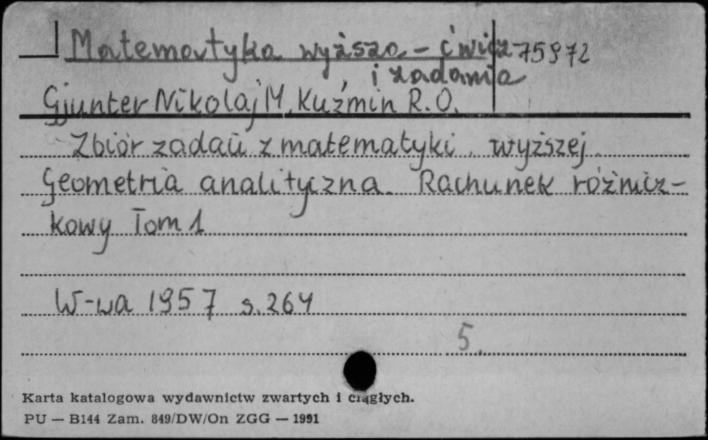 Matematyka wyższa - ćwicz 75972
i zadania
Gjunter Nikolaj M, Kuźmin R.O.
Zbiór zadań z matematyki wyższej
Geometria analityczna Rachunek różnicz-
kowy Tom 1
W-wa 1957 s.264
5.
Karta katalogowa wydawnictw zwartych i ciągłych.
PU — B144 Zam. 849/DW/On ZGG — 1991